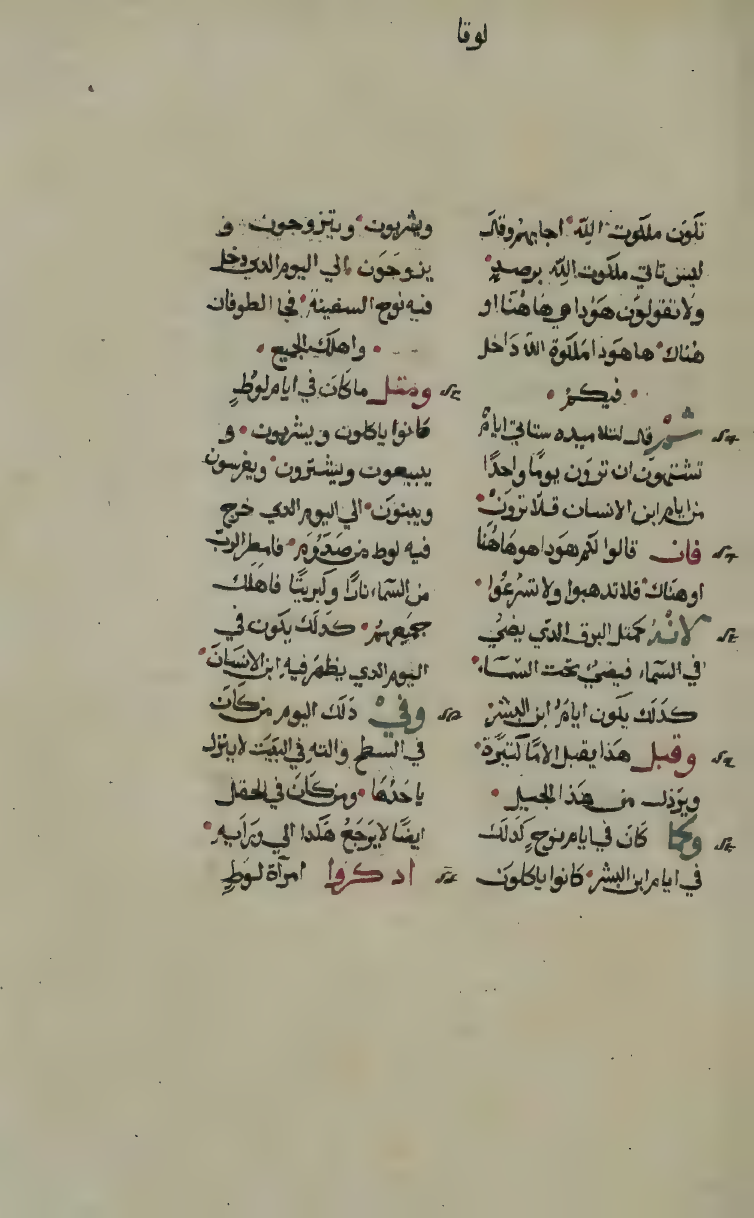 لوقا
تكون ملكوت الله اجابهم وقال
ليس تاتي ملكوت الله برصدٍ
ولا تقولون هوذا هي هاهُنا او
هُناك ها هوذا مَلكوة الله دَاخل
فيكم
ثم قال لتلاميده ستاتي ايامٌ
تشتهون ان ترون يومًا واحدًا
من ايام ابن الانسان فلا ترونَ
فان قالوا لكم هودا هو هَاهُنا
او هناك فلا تدهبوا ولا تسْرعُوا
لانهُ كمتل البرق الدي يضيُ
في السَماء فيضيُ تحت السَماء
كدلك يكون ايامُ ابن البشر
وقبل هدا يقبل الامًا كتيرَة
ويرَذل من هَدا الجيل
وكما كان في ايام نوح كدلك
في ايام ابن البشر كانوا ياكلون
ويشربون ويتزوجون و
يزوجَون الي اليوم الدي دخل
فيه نوح السفينة فجا الطوفان
واهلك الجيع
ومتل ما كان في ايام لوُطٍ
كانوا ياكلون ويشربون و
يبيعون ويشترون ويغرسون
ويبنون الي اليوم الدي خرج
فيه لوط من صَدُوم فامطر الربّ
من السَماء نارًا وكبريتًا فاهلك
جميعهم كدلك يكون في
اليوم الدي يظهر فيه ابن الانسَان
وفي دلك اليوم من كان
في السطح والته في البيت لا ينزل
ياخدُها ومن كان في الحقل
ايضًا لا يرَجعُ هكدا الي ورَايه
ادكروا امرآة لوَطٍ